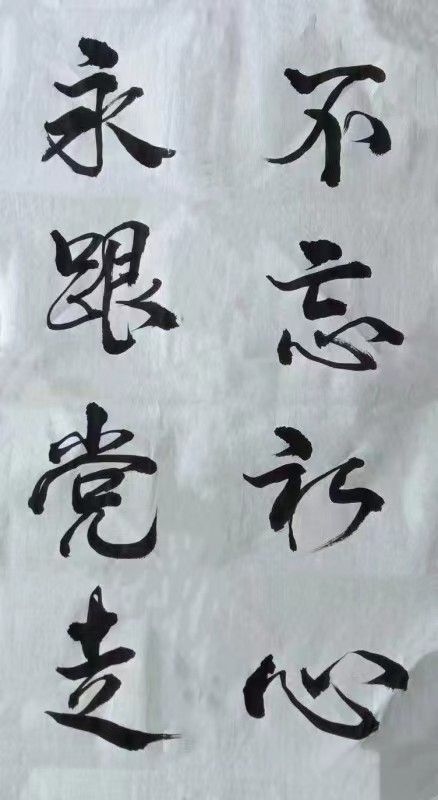 不忘初心
永跟党走